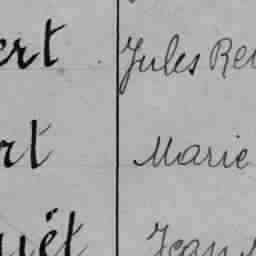 ert Jules Re
rt Marie
uët Jean